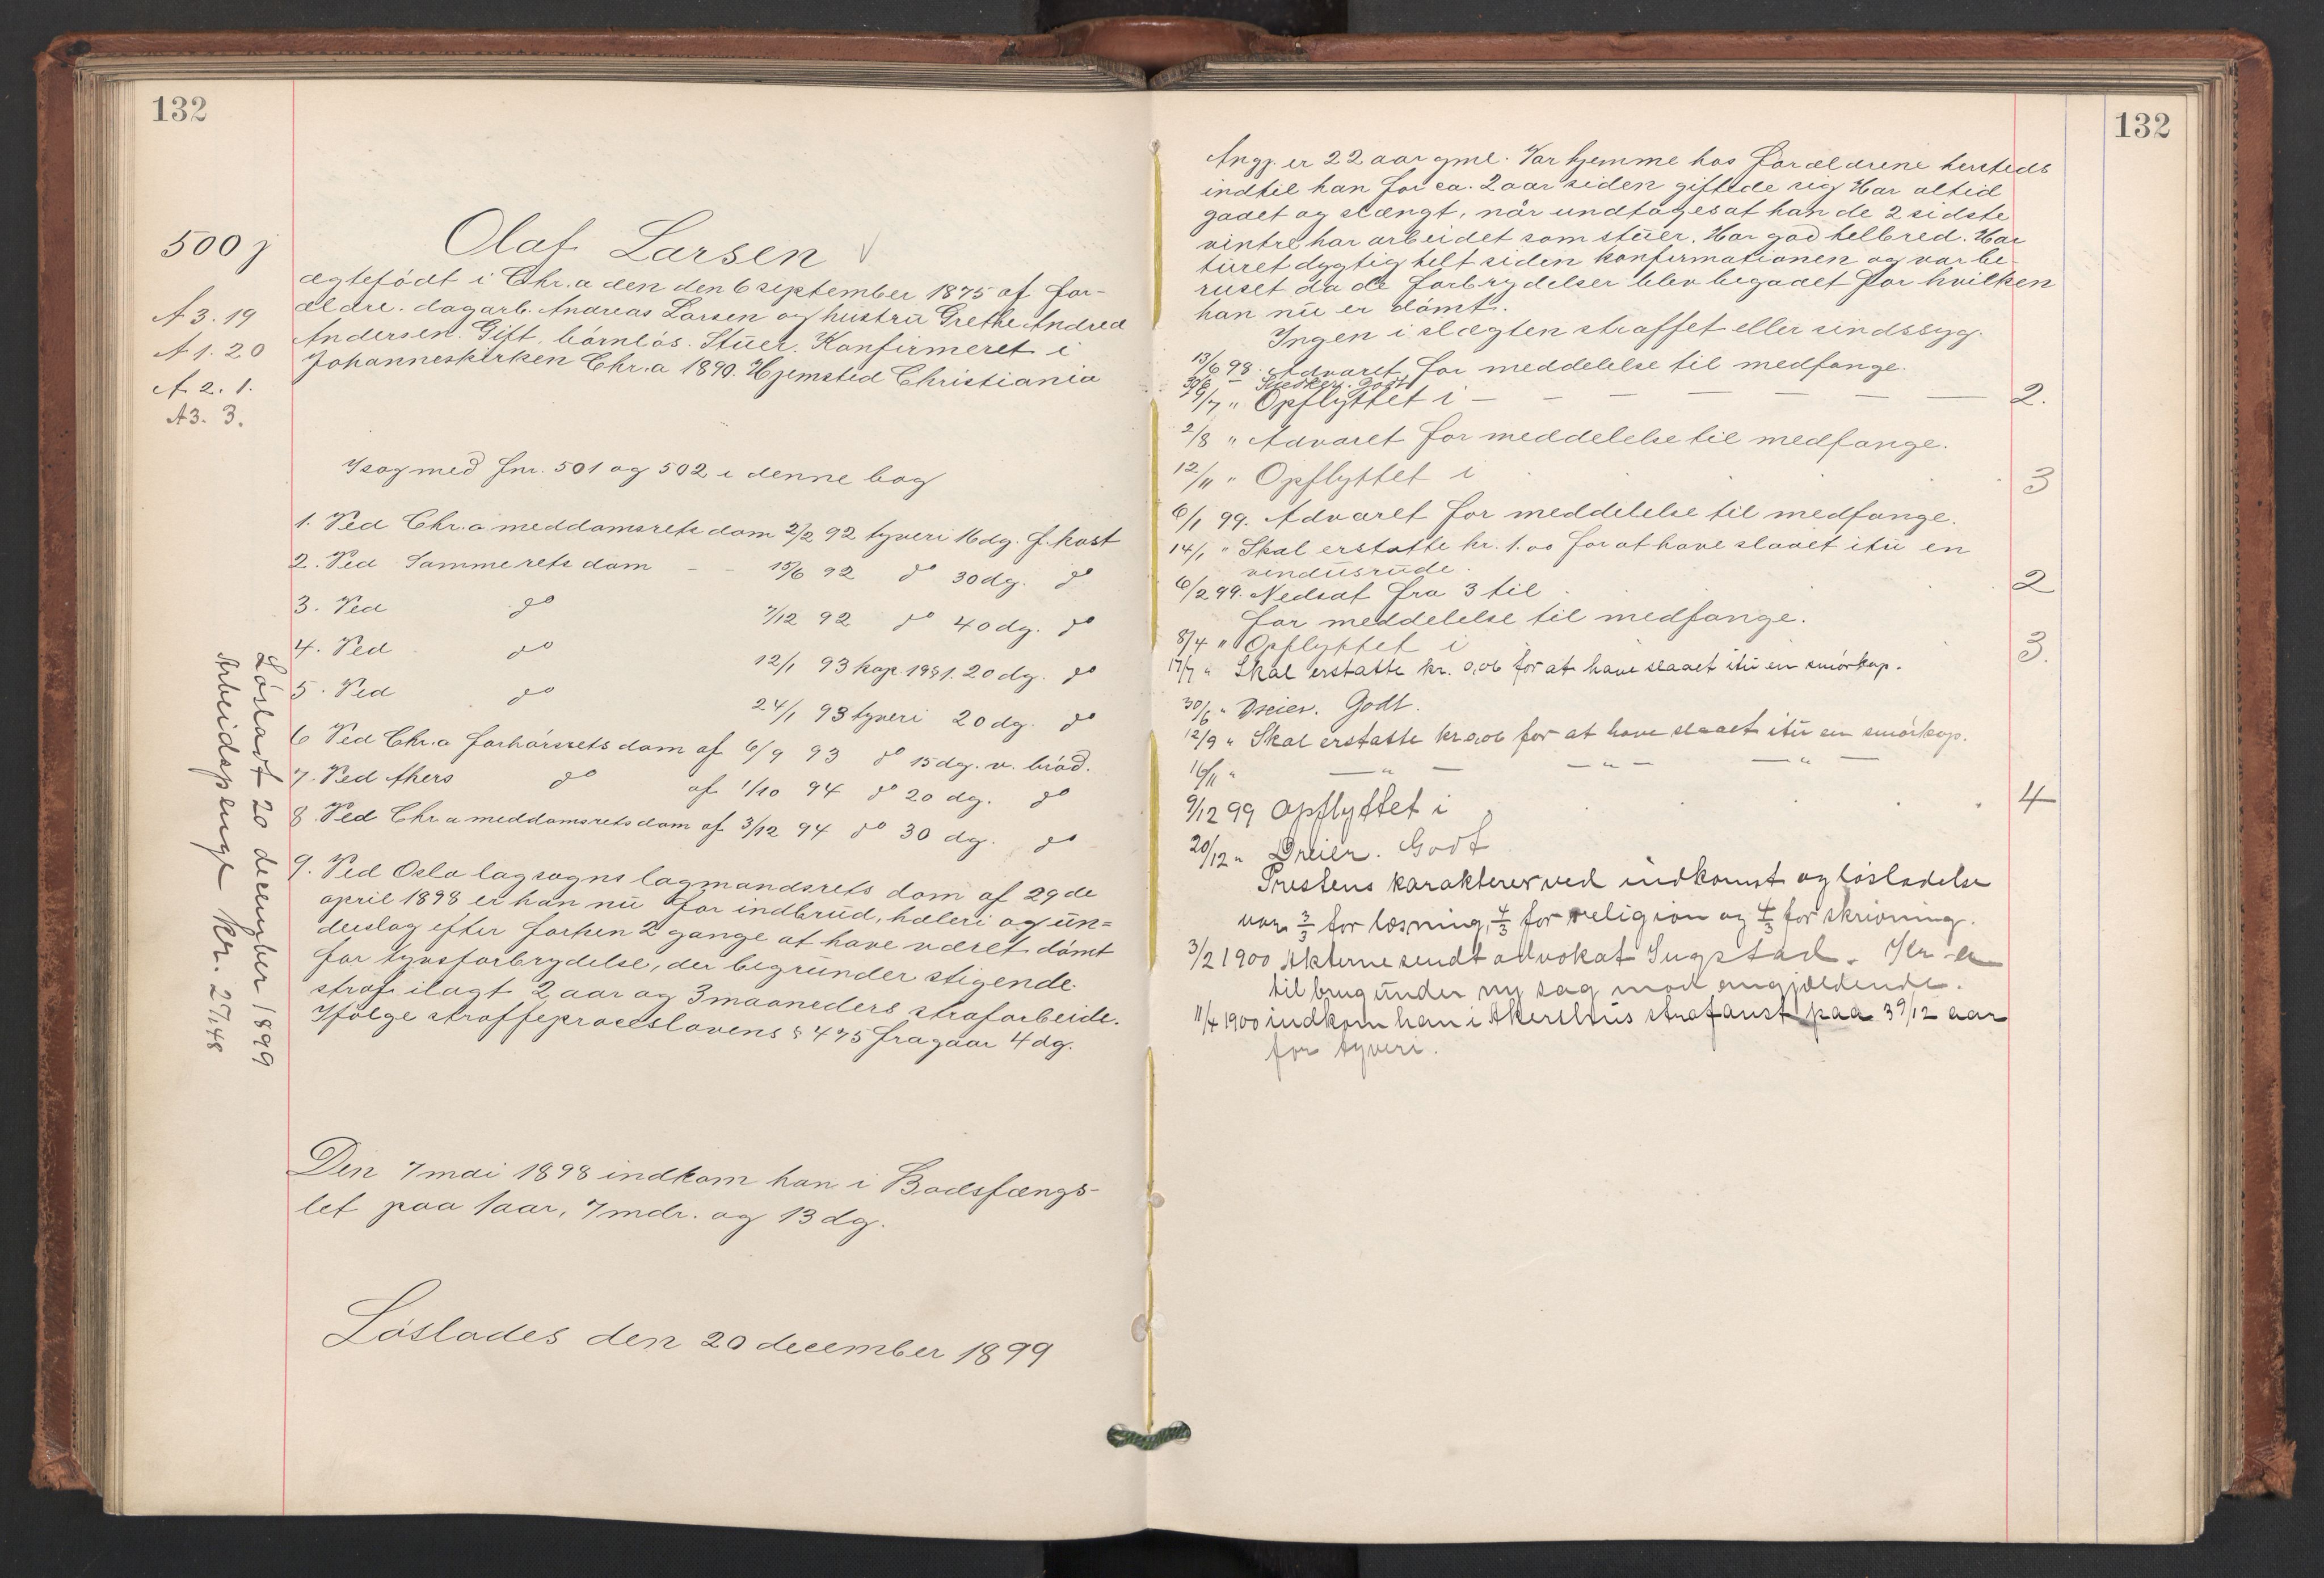 132
500 j
A 3. 19
A 1. 20
A 2. 1.
A3. 3.
Løsladt 20 december 1899
Arbeidspenge kr. 27,48
Olaf Larsen
ægtefødt i Chr.a den den 6 september 1875 af for-
ældre. dagarb. Andreas Larsen og hustru Grethe Andrea
Andersen. Gift, børnløs. Stuer. Konfirmeret i
Johanneskirken Chr.a 1890. Hjemsted Christiania
I sag med fnr. 501 og 502 i denne bog
1. Ved Chr.a meddomsrets dom 2/2 92 tyveri 16 dg. f. kost
2. Ved Samme rets dom - - 15/6 92 do 30 dg. do
3. Ved do 7/12 92 do 40 dg. do
4. Ved do 12/1 93 kap. 19 § 1. 20 dg. do
5. Ved do 24/1 93 tyveri 20 dg. do
6 Ved Chr.a forhørsrets dom af 6/9 93 do 15 dg. v. brød.
7. Ved Akers do af 1/10 94 do 20 dg. do
8. Ved Chr a meddomsrets dom af 3/12 94 do 30 dg. do
9. Ved Oslo lagsogns lagmandsrets dom af 29de
april 1898 er han nu for indbrud, hæleri og un=
derslag efter forhen 2 gange at have været dømt
for tyvsforbrydelse, der begrunder stigende
straf ilagt 2 aar og 3 maaneders strafarbeide.
Ifølge straffeproceslovens § 475 fragaar 4 dg.
Den 7 mai 1898 indkom han i Bodsfængs-
let paa 1 aar, 7 mdr. og 13 dg.
Løslades den 20 december 1899
132
Angj. er 22 aar gml. Var hjemme hos forældrene hersteds
indtil han for ca. 2 aar siden giftede sig Har altid
gaaet og slængt, når undtages at han de 2 sidste
vintre har arbeidet som stuer. Har god helbred. Har
turet dygtig helt siden konfirmationen og var be-
ruset da de forbrydelser blev begaaet for hvilken
han nu er dømt.
Ingen i slægten straffet eller sindssyg.
13/6 98. Advaret for meddelelse til medfange.
30/6 - Godt
29/7 " Opflyttet i - - - - - - - 2.
2/8 " Advaret for meddelelse til medfange.
12/11 " Opflyttet i 3
6/1 99. Advaret for meddelelse til medfange.
14/1 " Skal erstatte kr. 1.00 for at have slaaet itu en
vindusrude.
6/2 99. Nedsat fra 3 til 2
for meddelelse til medfange.
8/4 " Opflyttet i 3.
17/7 " Skal erstatte kr. 0,06 for at have slaaet itu en smørkop.
30/6 " Dreier. Godt.
12/9 " Skal erstatte kr 0,06 for at have slaaet itu en smørkop.
16/11 " — " — — " — — " —
9/12 99 Opflyttet i 4
20/12 " Dreier. Godt
Prestens karakterer ved indkomst og løsladelse
var 3/3 for læsning, 4/3 for religion og 4/3 for skrivning.
3/2 1900 Akterne sendt advokat Kr-a
til brug under ny sag mod angjældende.
11/4 1900 indkom han i Akershus strafanst paa 3 9/12 aar
for tyveri.